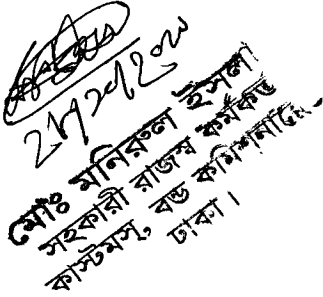 মোঃ মনিরুল ইসলা
সহকারী রাজস্ব কর্মকর্ত
কাস্টমস্, বন্ড কমিশনারেট,
ঢাকা।